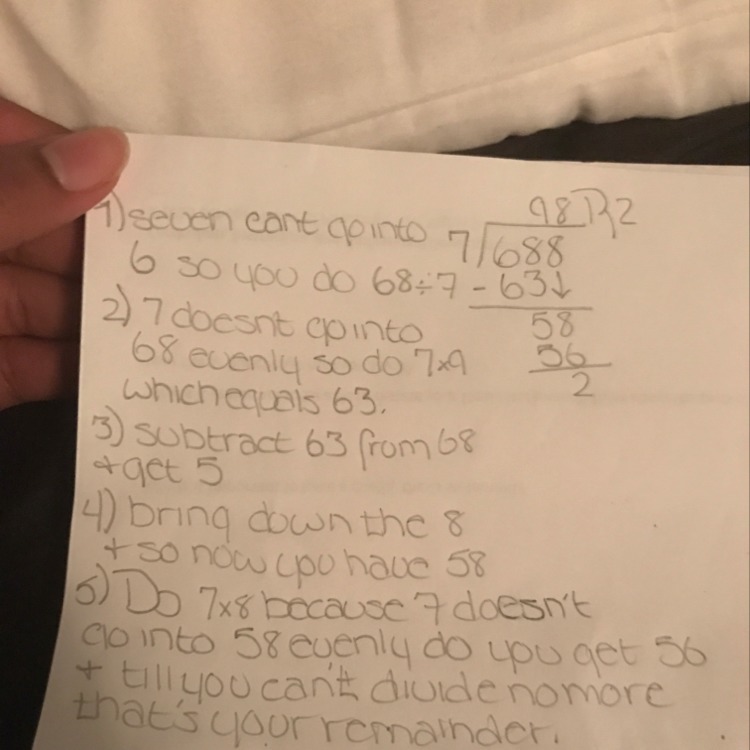 1) seven cant go into
6 so you do 68÷7
2) 7 doesnt go into
68 evenly so do 7x9
which equals 63.
3) subtract 63 from 68
+ get 5
4) bring down the 8
+ so now you have 58
5) Do 7x8 because 7 doesn't
go into 58 evenly do you get 56
+ till you can't divide nomore
that's your remainder.
98R2
7/688
- 63↓
58
56
2